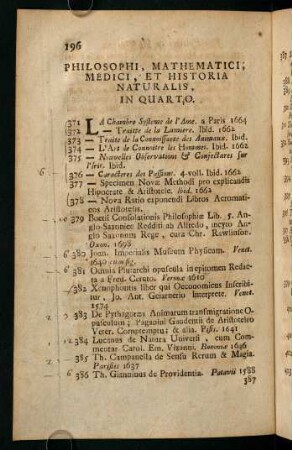 196
PHILOSOPHI, MATHEMATICI;
MEDICI, ET HISTORIA
NATURALIS,
IN QUARTO.
371 LA Chambre Systeme de l'Ame. a Paris 1664
372 — Traitte de la Lumiere. Ibid. 1662
373 — Traite de la Connoissance des Animaux. Ibid.
374 — L'Art de Connoitre les Hommes. Ibid. 1662
375 — Nouvelles Observations & Conjectures sur
l'Iris. Ibid.
376 — Caracteres des Passions. 4. voll. Ibid. 1662
377 — Specimen Novæ Methodi pro explicandis
Hipocrate & Aristotele. Ibid. 1662
378 — Nova Ratio exponendi Libros Acromuti-
cos Aristotelis.
379 Boetii Consolationis Philosophiæ Lib. 5. Anglo-
Saxonice Redditi ab Alfredo, inclyto An-
glo Saxonum Rege, cura Chr. Rawlinson.
Oxon. 1698
380 Joan. Imperialis Museum Physicam. Venet.
1640 cum fig.
381 Omnia Plutarchi opuscula in epitomen Redac-
ta a Fred. Ceruto. Veronæ 1610
382 Xenophontis liber qui Oeconomicus Inscribi-
tur, Jo. Ant. Interprete. Venet.
1574
383 De Pythagoræ Animarum transmigratione O-
pusculum; Paganini Gaudentii de Aristoteleo
Veter. Comtemptu & alia. Pisis. 1641
384 Lucanus de Natura Universi, cum Commen-
tar. Carol. Em. Vizanii. Bononiæ 1646
385 Th. Campanella de Sensu Rerum & Magia.
Parisiis 1637
386 Th. Gianninus de Providentia. Patavii 1588
387